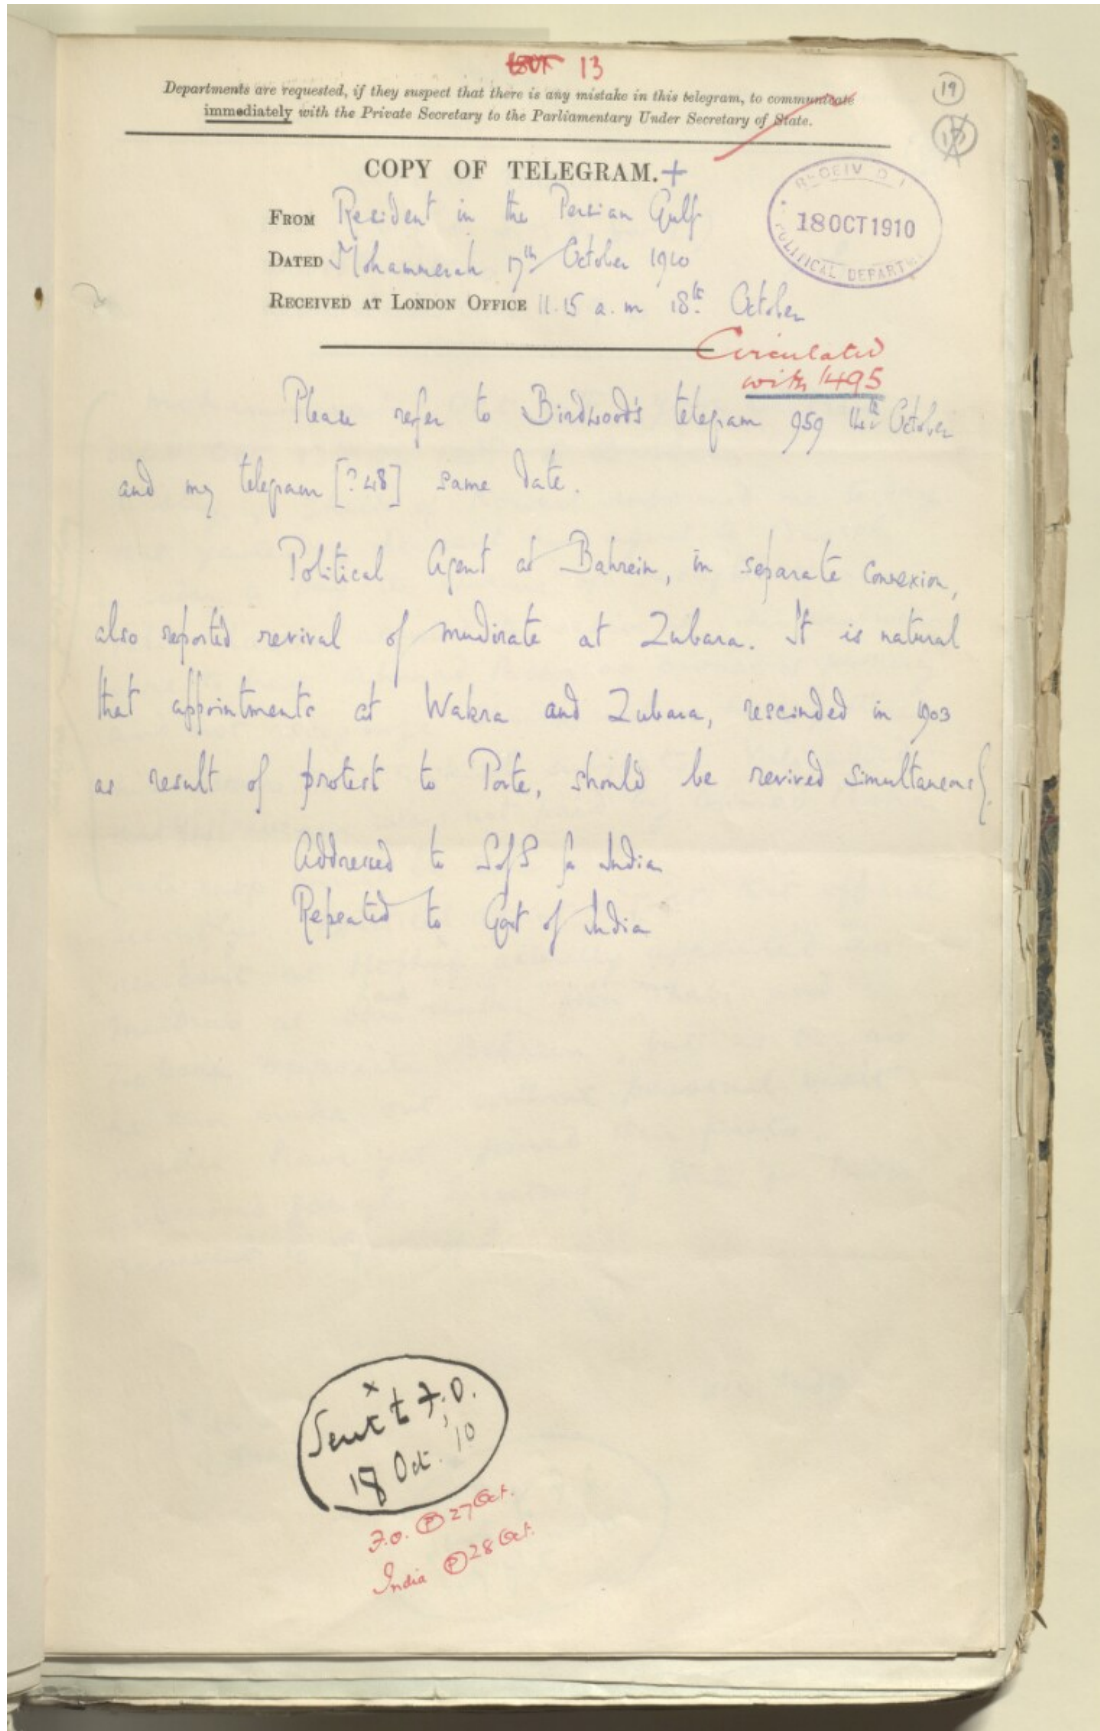 13
19
Departments are requested, if they suspect that there is any mistake in this telegram, to communicate
immediately with the Private Secretary to the Parliamentary Under Secretary of State.
COPY OF TELEGRAM.+
FROM Resident in the Persian Gulf
DATED Mohammerah 17th October 1910
RECEIVED AT LONDON OFFICE 11.15 a.m 18th October
18 OCT 1910
POLITICAL DEPART
Circulated
with 1495
Please refer to Birdwood's telegram 959 14th October
and my telegram [? 48] same date.
Political Agent at Bahrein, in separate connexion,
also reported revival of mudirate at Zubara. It is natural
that appointments at Wakra and Zubara, rescinded in 1903
as result of protest to Porte, should be revived simultaneously.
Addressed to SofS for India
Repeated to Govt of India
x
Sent to F.O.
18 Oct. 10
F.O. (P) 27 Oct.
India (P) 28 Oct.